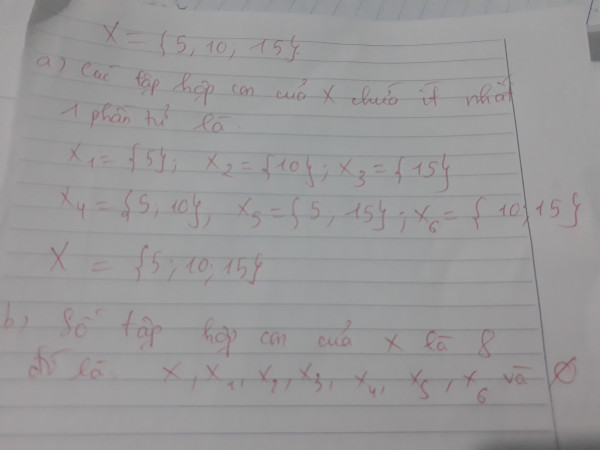 X = {5, 10, 15}
a) Các tập hợp con của X chứa ít nhất
1 phần tử là
X₁ = {5}; X₂ = {10}; X₃ = {15}
X₄ = {5, 10}, X₅ = {5, 15}; X₆ = {10, 15}
X = {5; 10; 15}
b, Số tập hợp con của X là 8
đó là X, X₁, X₂, X₃, X₄, X₅, X₆ và ∅